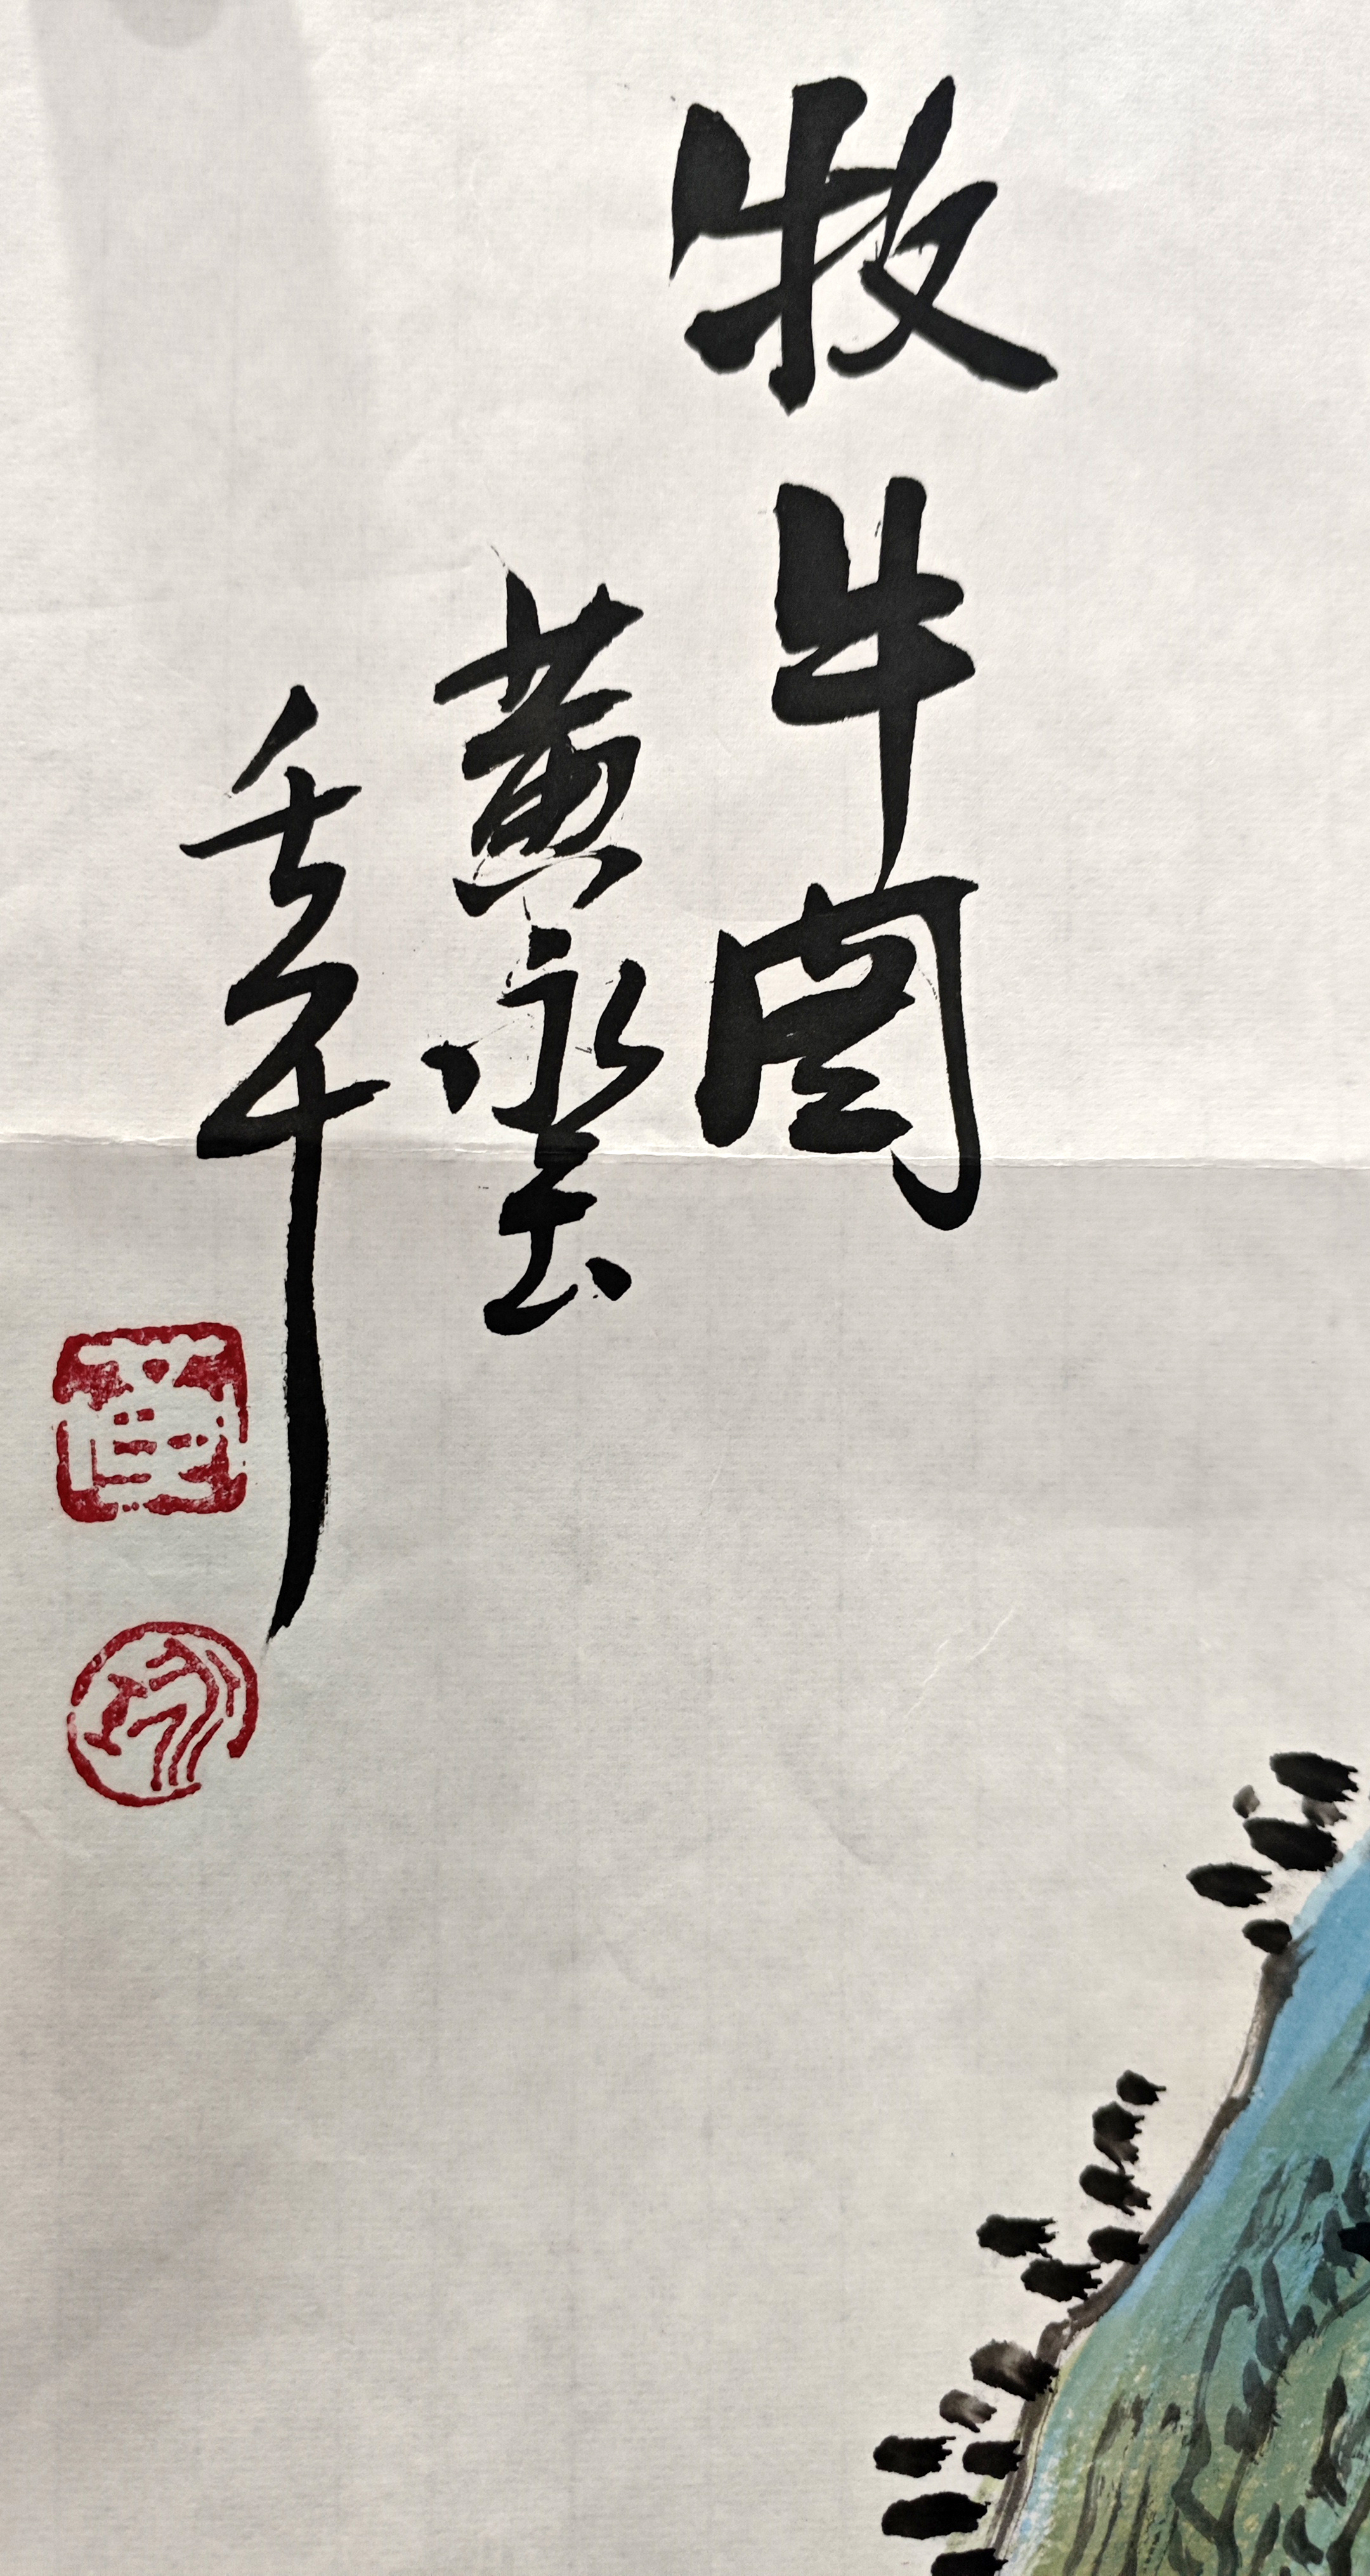 牧牛图
黄永玉
壬午